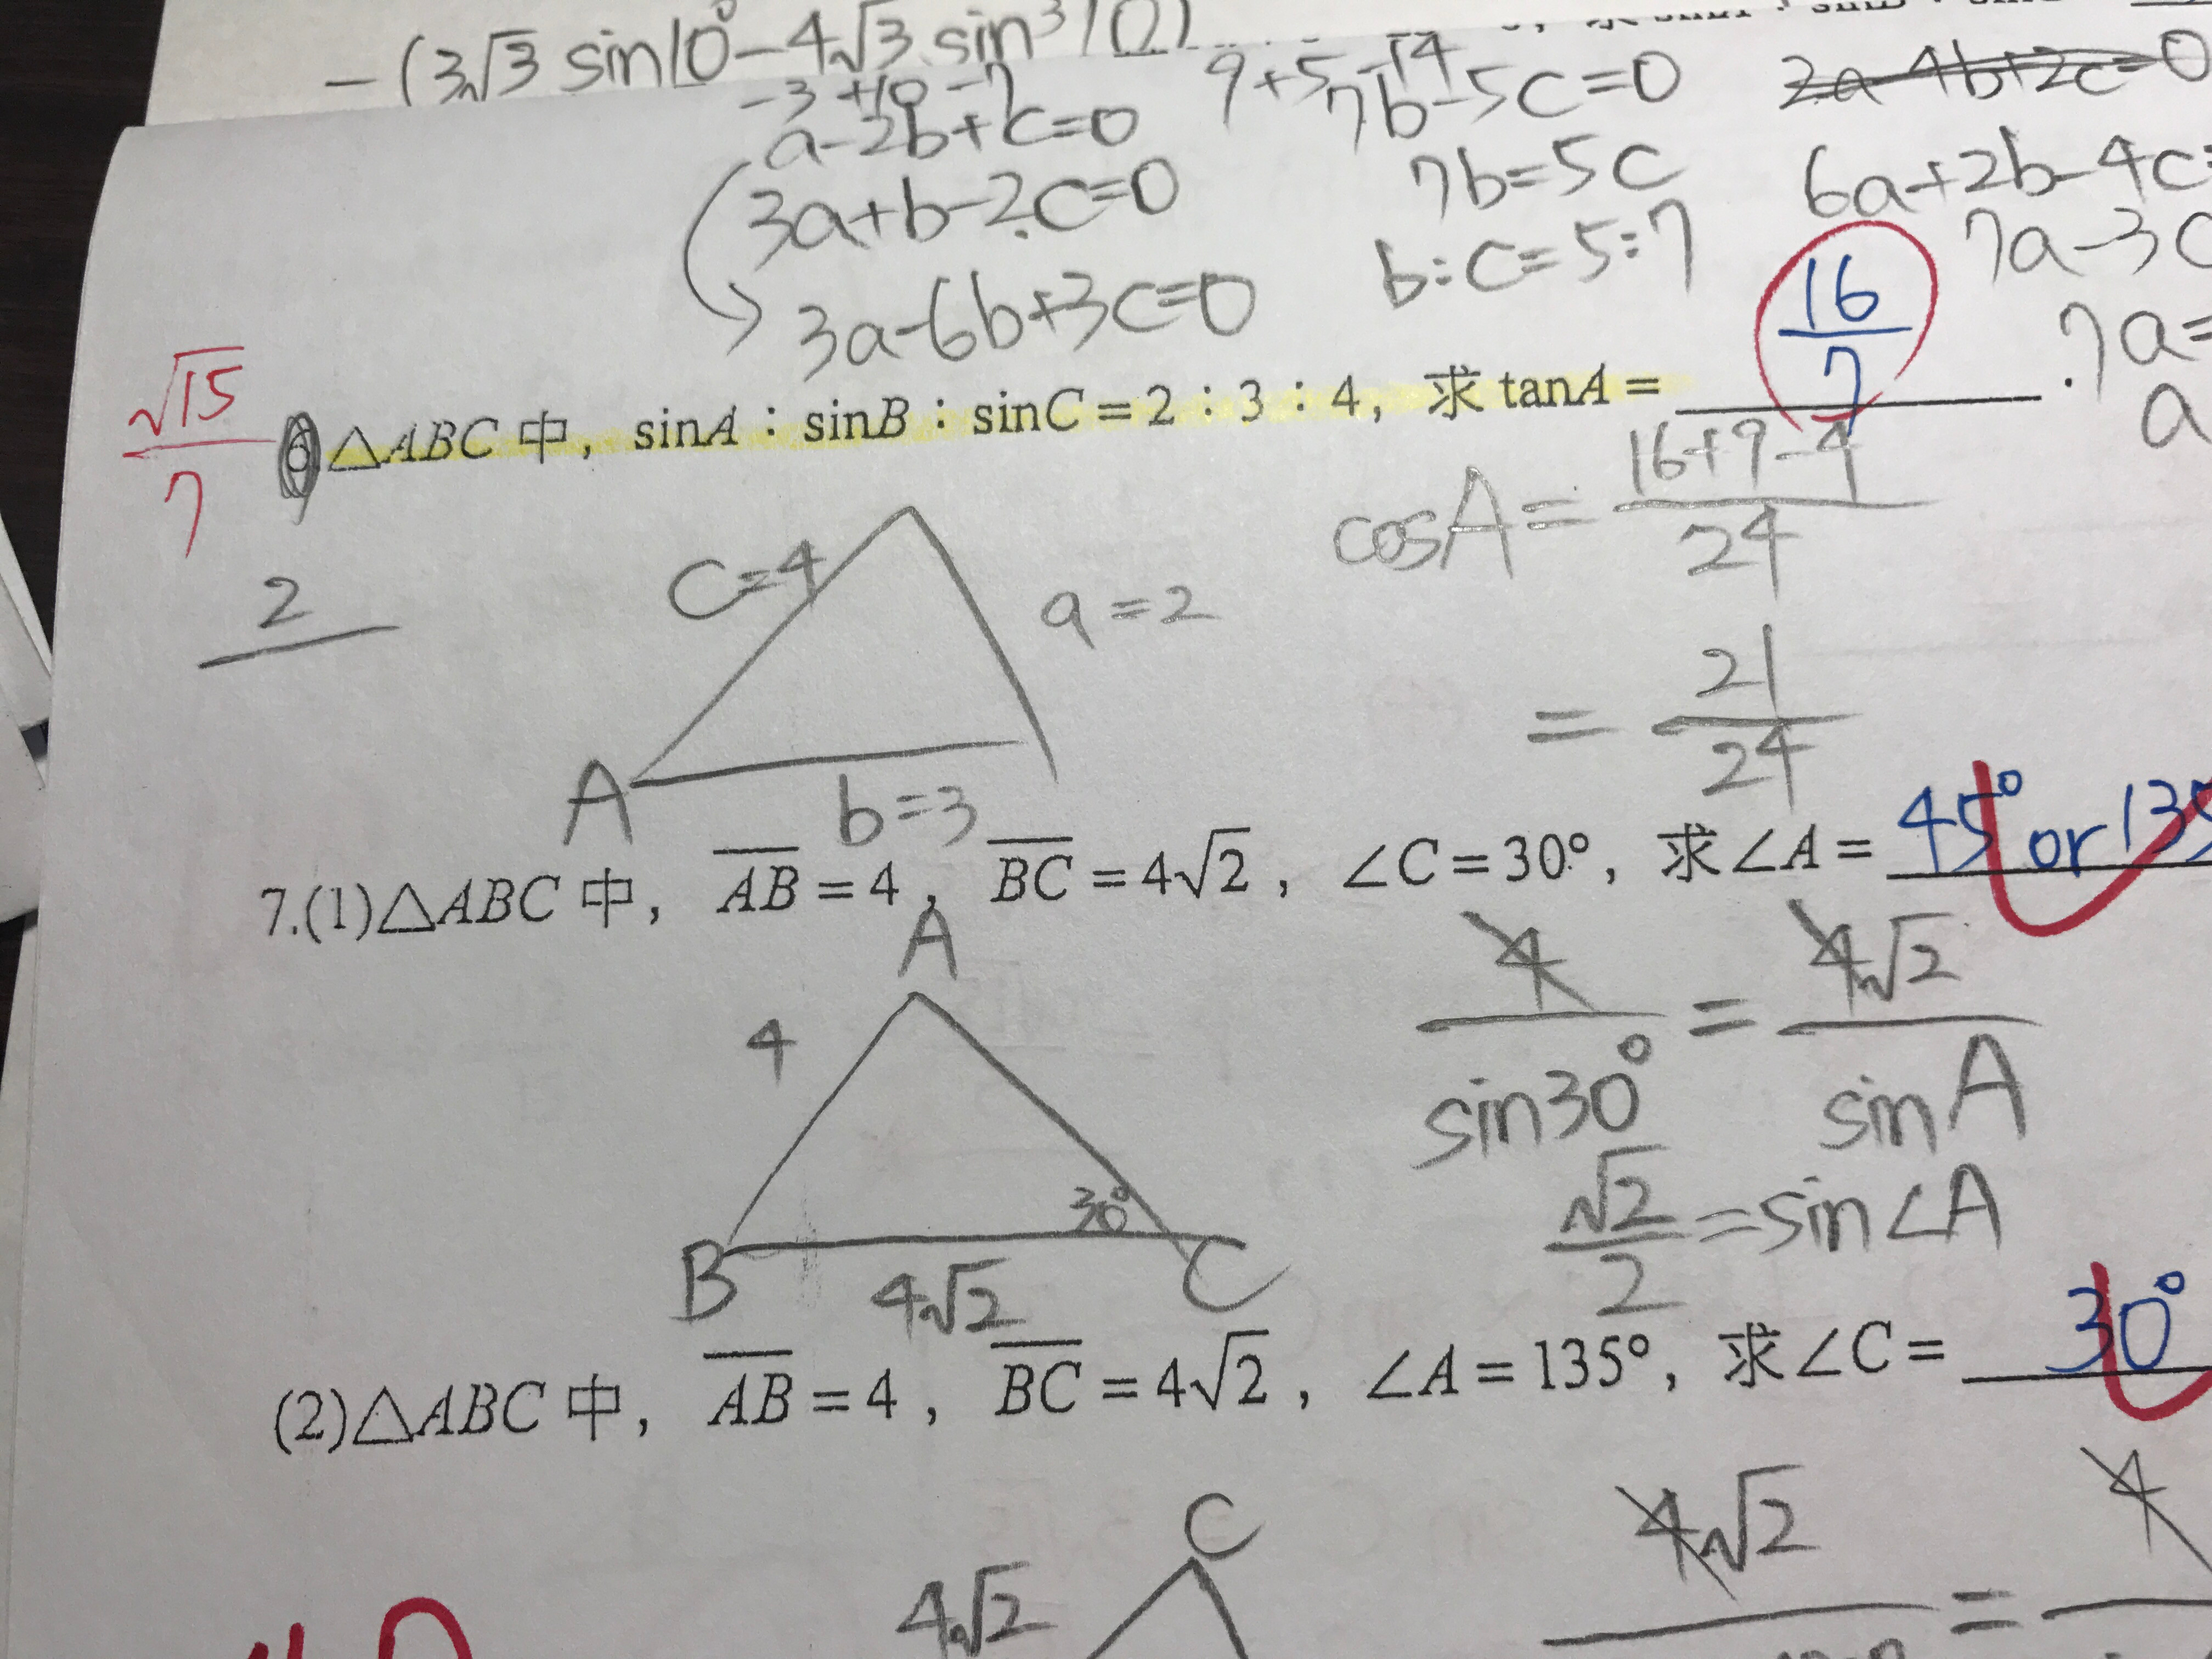 -(3√3 sin10°-4√3 sin³10)
-3+10-7
a-2b+c=0
3a+b-2c=0
3a-6b+3c=0
9+5-14
7b-5c=0
7b=5c
b:c=5:7
2a-4b+2c=0
6a+2b-4c=
7a-3c
7a=
a
√15/7
6 △ABC 中，sinA：sinB：sinC=2：3：4，求 tanA= 16/7 .
2
c=4
a=2
A
b=3
cosA=(16+9-4)/24
=21/24
7.(1)△ABC 中，AB=4，BC=4√2，∠C=30°，求∠A= 45° or 135
A
4
30°
B
4√2
C
4/sin30°=4√2/sinA
√2/2=sin∠A
(2)△ABC 中，AB=4，BC=4√2，∠A=135°，求∠C= 30°
C
4√2
4√2 = 4